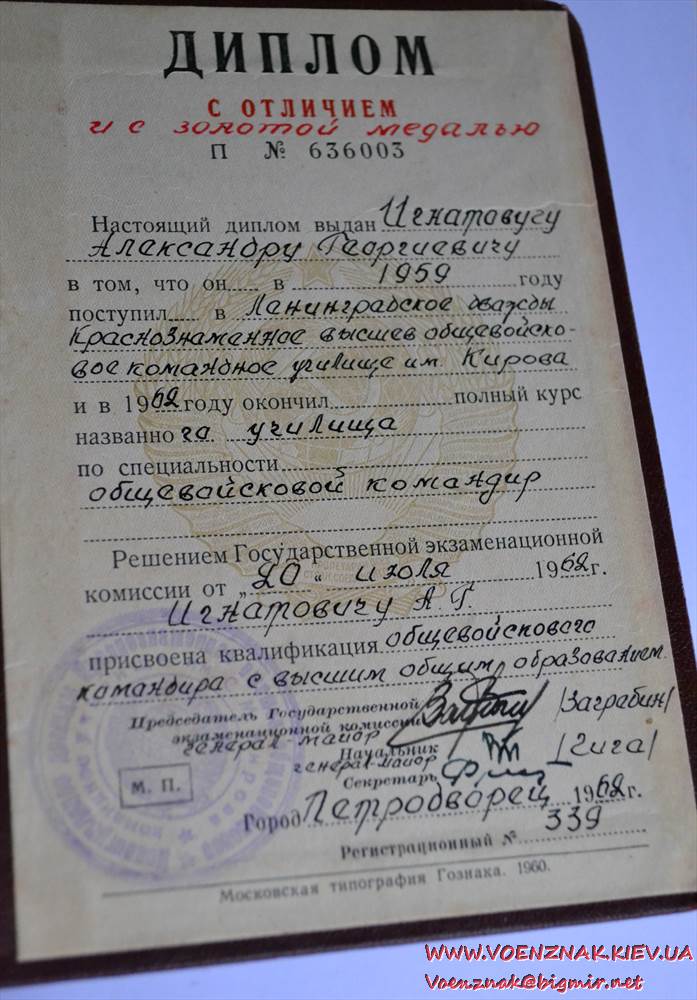 ДИПЛОМ
С ОТЛИЧИЕМ
и с золотой медалью
П № 636003
Настоящий диплом выдан Игнатовичу
Александру Георгиевичу
в том, что он в 1959 году
поступил в Ленинградское дважды
Краснознаменное высшее общевойско-
вое командное училище им. Кирова
и в 1962 году окончил полный курс
названного училища
по специальности
общевойсковой командир
Решением Государственной экзаменационной
комиссии от „20" июля 1962 г.
Игнатовичу А. Г.
присвоена квалификация общевойскового
командира с высшим общим образованием.
Председатель Государственной
экзаменационной комиссии /Заграбин/
генерал-майор Начальник /Гига/
генерал-майор
Секретарь
М. П.
Город Петродворец 1962 г.
Регистрационный № 339
Московская типография Гознака. 1960.
WWW.VOENZNAK.KIEV.UA
Voenznak@bigmir.net